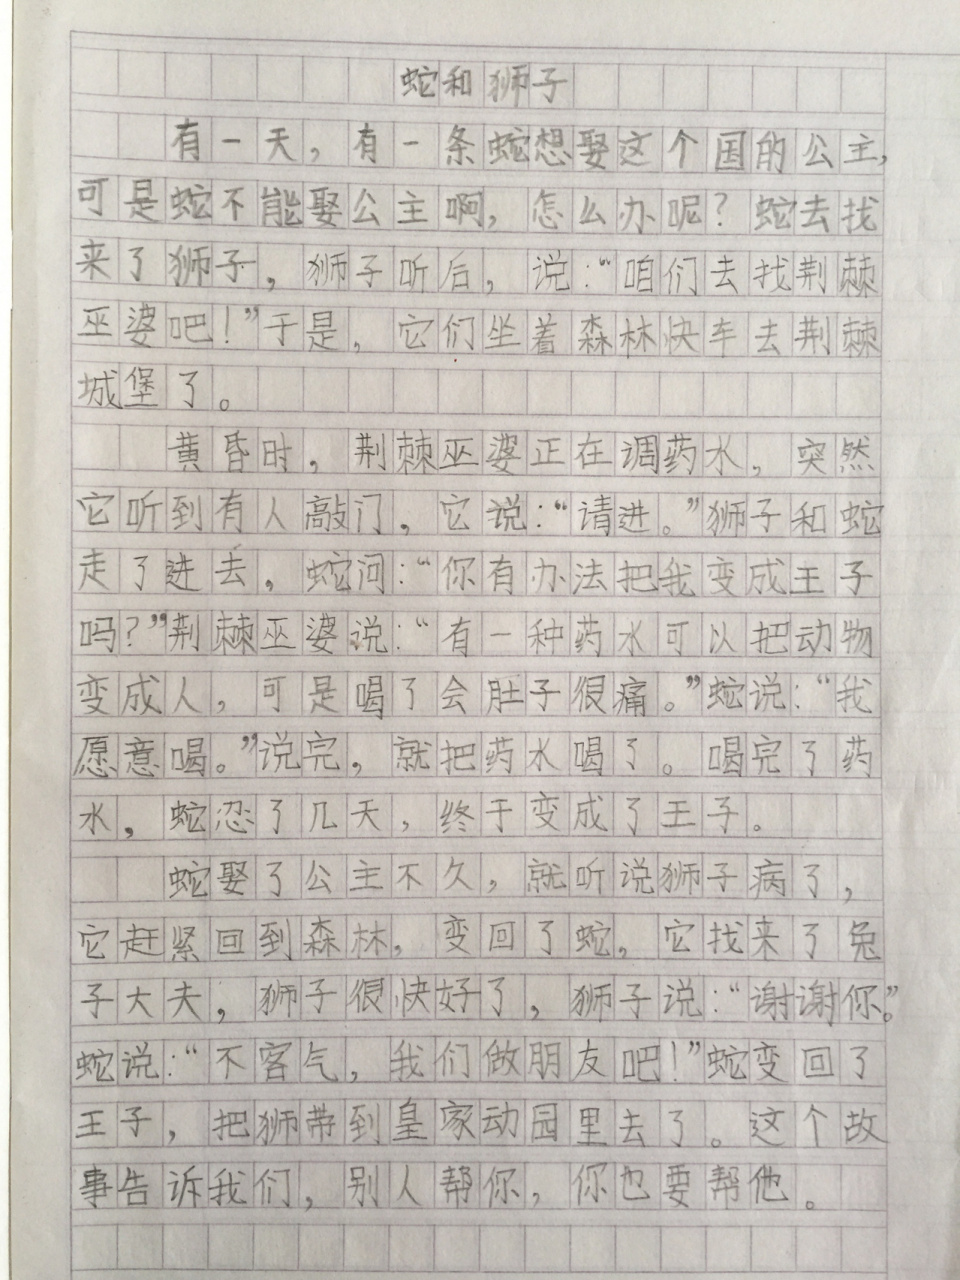 蛇和狮子
有一天，有一条蛇想娶这个国的公主，
可是蛇不能娶公主啊，怎么办呢？蛇去找
来了狮子，狮子听后，说：“咱们去找荆棘
巫婆吧！”于是，它们坐着森林快车去荆棘
城堡了。
黄昏时，荆棘巫婆正在调药水，突然
它听到有人敲门，它说：“请进。”狮子和蛇
走了进去，蛇问：“你有办法把我变成王子
吗？”荆棘巫婆说：“有一种药水可以把动物
变成人，可是喝了会肚子很痛。”蛇说：“我
愿意喝。”说完，就把药水喝了。喝完了药
水，蛇忍了几天，终于变成了王子。
蛇娶了公主不久，就听说狮子病了，
它赶紧回到森林，变回了蛇，它找来了兔
子大夫，狮子很快好了，狮子说：“谢谢你。”
蛇说：“不客气，我们做朋友吧！”蛇变回了
王子，把狮带到皇家动园里去了。这个故
事告诉我们，别人帮你，你也要帮他。